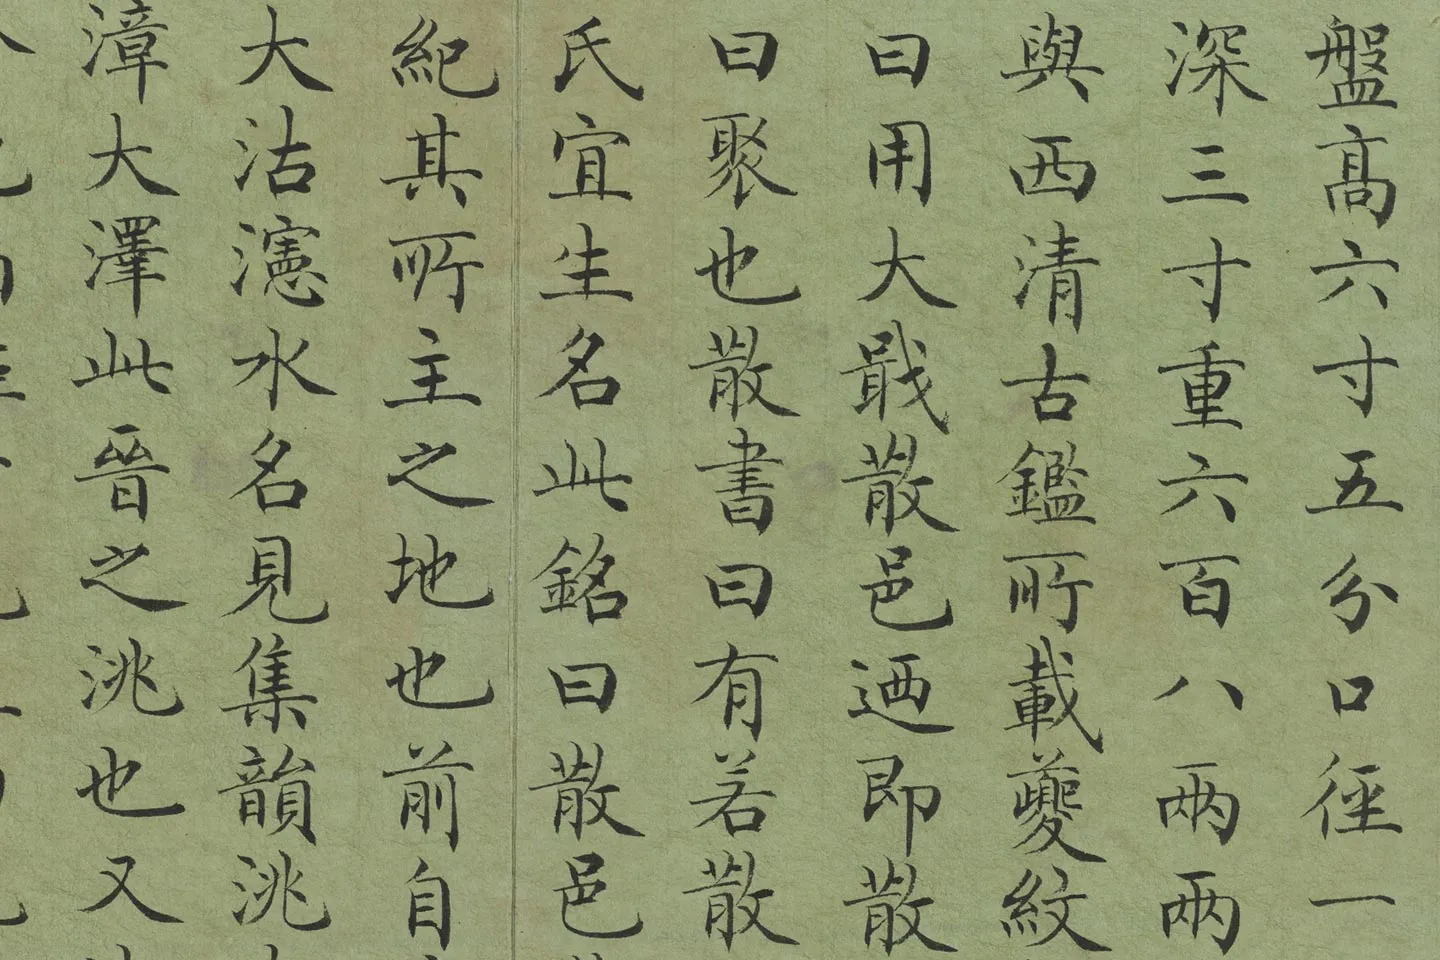 盤髙六寸五分口徑一
深三寸重六百八兩兩
與西清古鑑所載夔紋
曰用大戢散邑迺即散
曰聚也散書曰有若散
氏宜生名此銘曰散邑
紀其所主之地也前自
大沽瀗水名見集韻洮
漳大澤此晉之洮也又